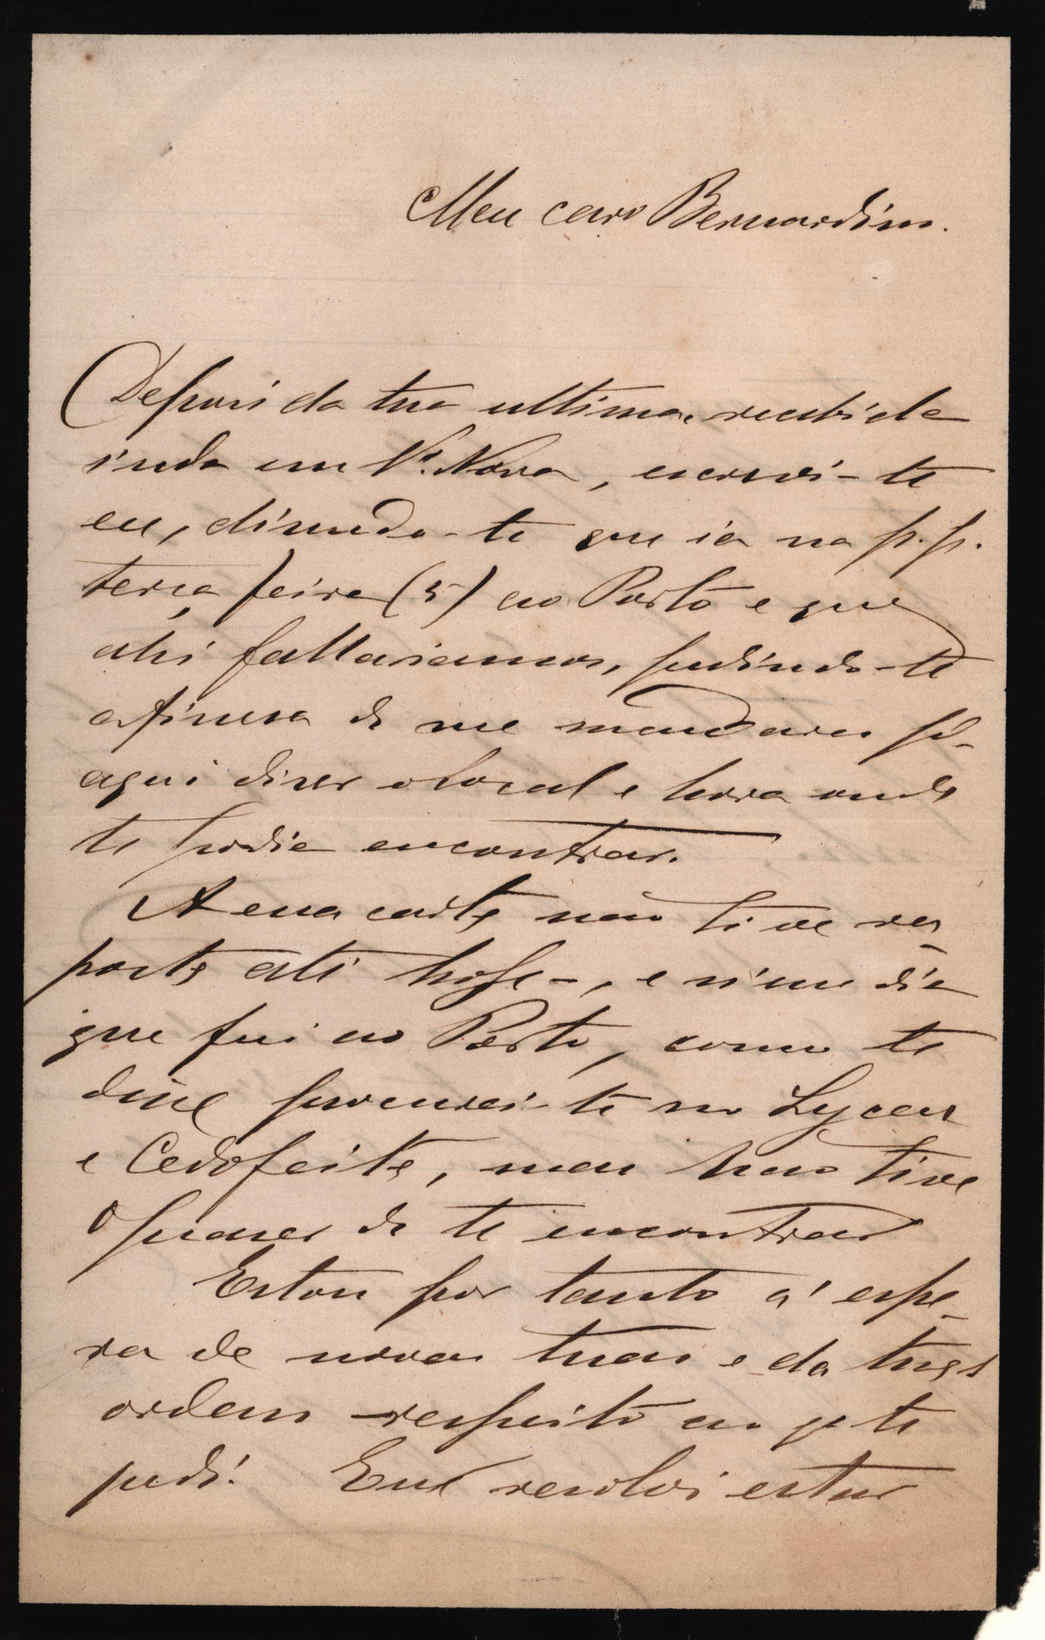 Meu caro Bernardim.
Depois da tua ultima, recebida
inda em Vª. Nova, escrevi-te
eu, dizendo-te que ia na p.p.
terça feira (5) ao Porto e que
ahi fallariamos, pedindo-te
a fineza de me mandares p.ª
aqui dizer o local e hora onde
te podia encontrar.
A essa carta não tive res
posta até hoje-, e n'um dia
que fui ao Porto, como te
disse procurei-te no Lyceu
e Cedofeita, mas não tive
o prazer de te encontrar
Estou por tanto á espe-
ra de novas tuas e da tuas
ordens respeito ao q te
pedi. Eu resolvi estar